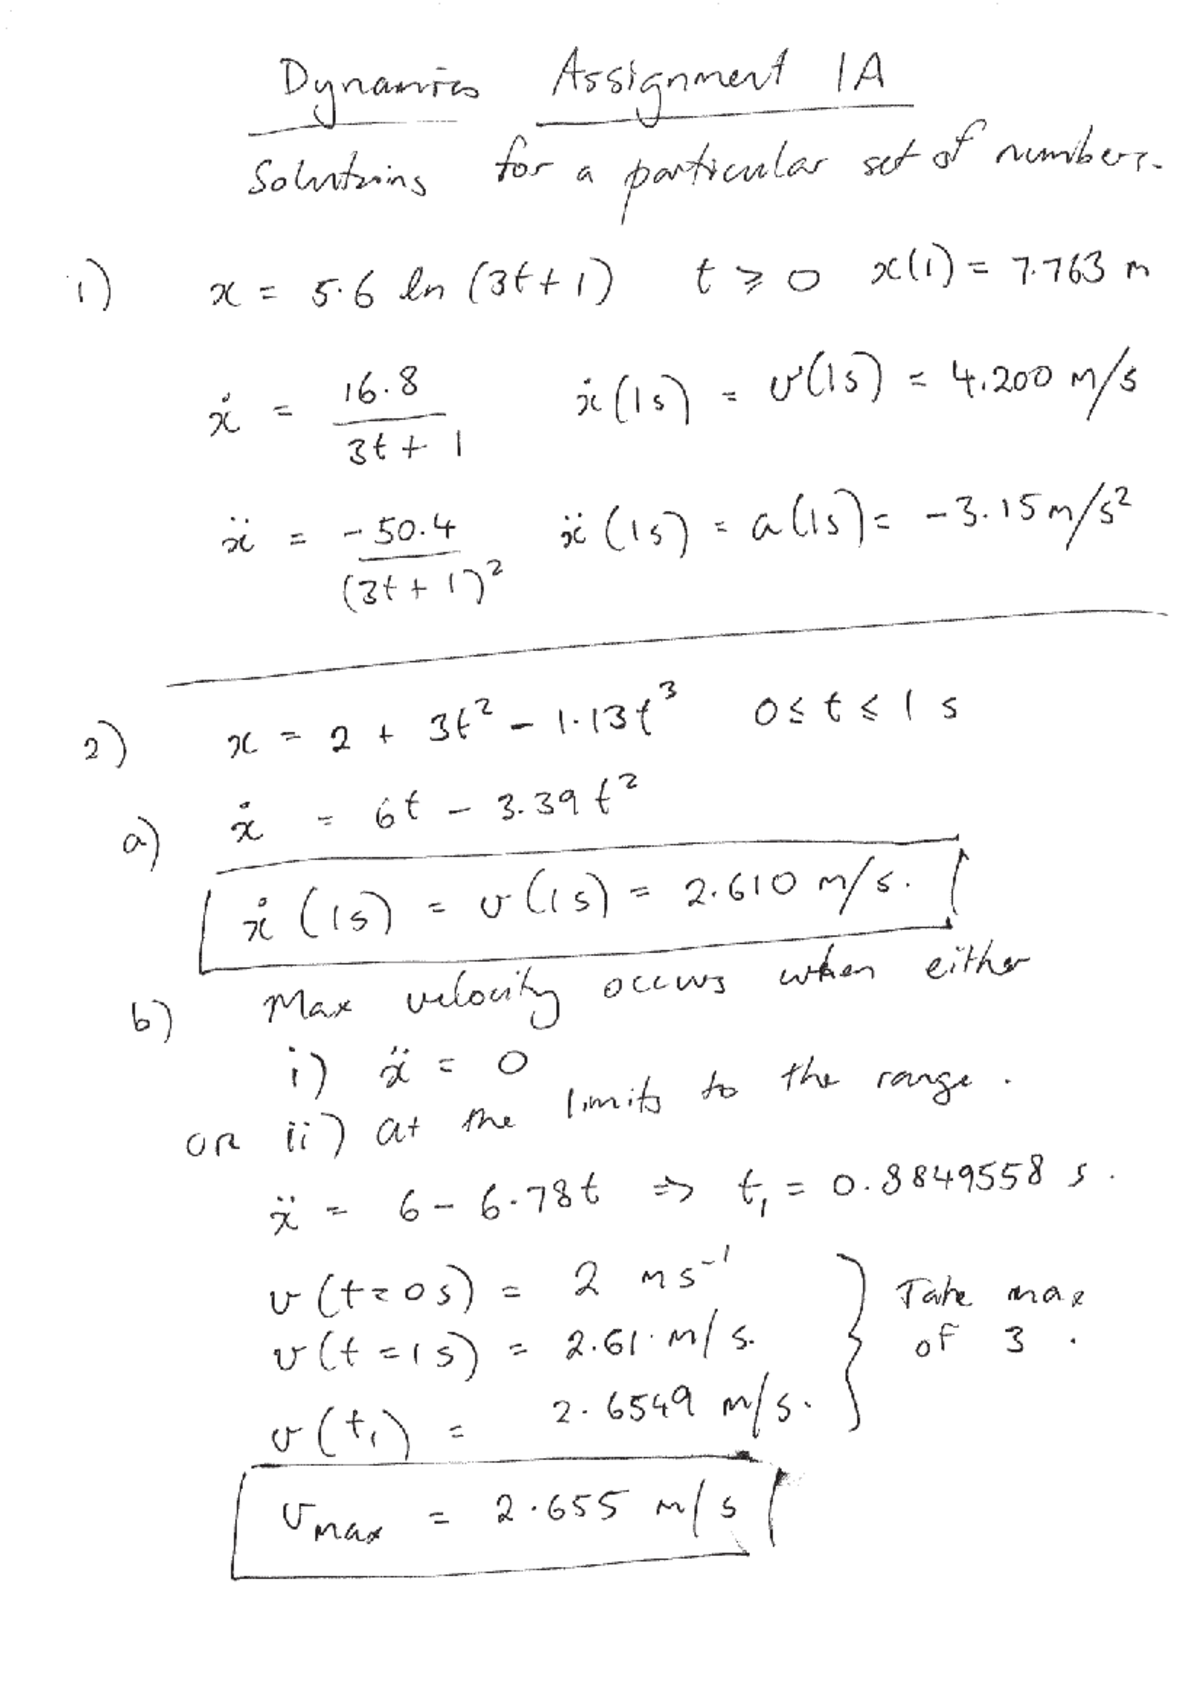 Dynamics Assignment 1A
Solutions for a particular set of numbers.
1) x = 5.6 ln (3t + 1) t ⩾ 0 x(1) = 7.763 m
ẋ = 16.8 / (3t + 1) ẋ(1s) = v(1s) = 4.200 m/s
ẍ = -50.4 / (3t + 1)² ẍ(1s) = a(1s) = -3.15 m/s²
2) x = 2 + 3t² - 1.13t³ 0 ≤ t ≤ 1 s
a) ẋ = 6t - 3.39t²
ẋ(1s) = v(1s) = 2.610 m/s.
b) Max velocity occurs when either
i) ẍ = 0
OR ii) at the limits to the range.
ẍ = 6 - 6.78t ⇒ t₁ = 0.8849558 s.
v(t=0s) = 2 ms⁻¹
v(t=1s) = 2.61 m/s.
v(t₁) = 2.6549 m/s.
} Take max
of 3.
vmax = 2.655 m/s